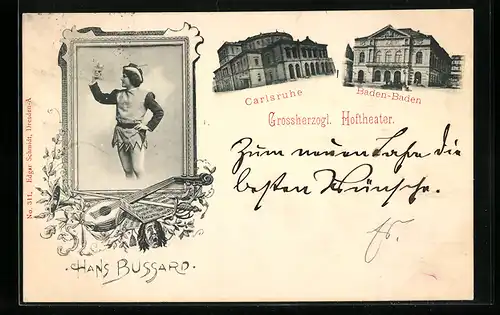 No. 311. Edgar Schmidt, Dresden-A
Carlsruhe
Baden-Baden
Grossherzogl. Hoftheater.
Zum neuen Jahre die
besten Wünsche.
HANS BUSSARD.